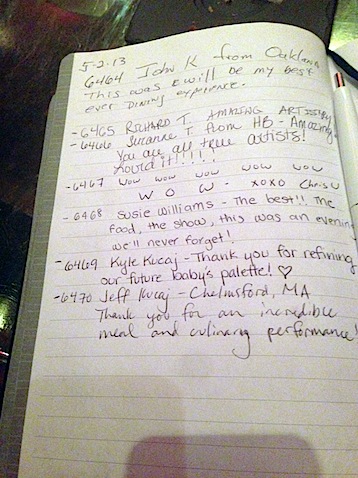 5-2-13
6464 John K from Oakland
This was & will be my best
ever DINING experience.
-6465 RICHARD T. AMAZING ARTISTRY
-6466 Suzanne T from HB - Amazing!
You are all true artists!
Loved it!!!!!
-6467 WOW WOW WOW WOW WOW
W O W - XOXO Chris U
-6468 Susie Williams - The best!! The
food, the show, this was an evening
we'll never forget!
-6469 Kyle Kucaj - Thank you for refining
our future baby's palette! ♡
-6470 Jeff Kucaj - Chelmsford, MA
Thank you for an incredible
meal and culinary performance!